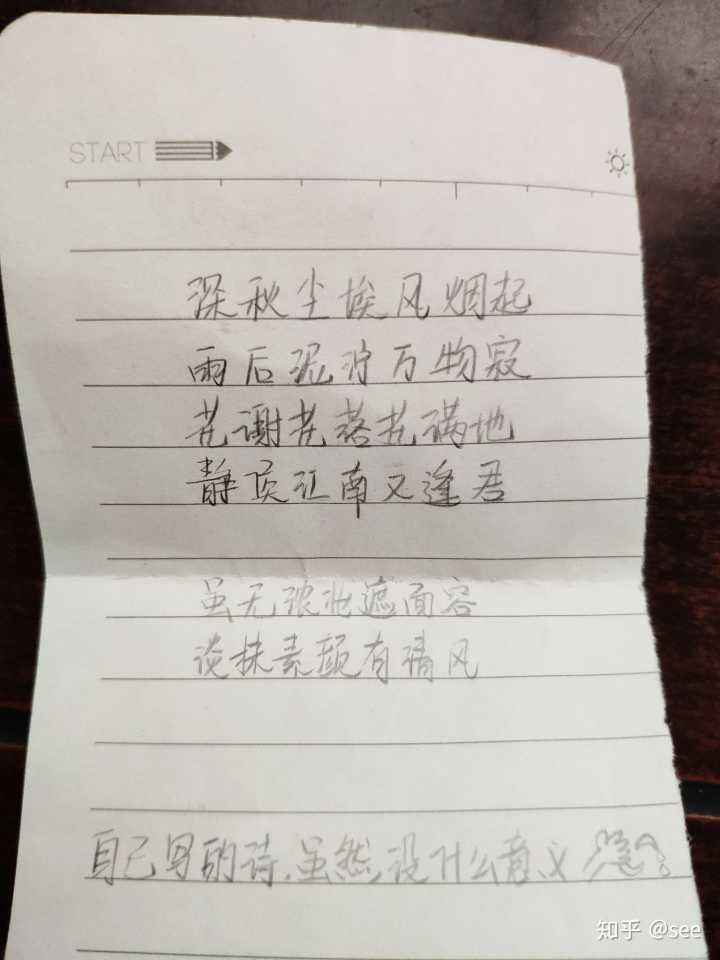 START
深秋尘埃风烟起
雨后泥泞万物寂
花谢花落花满地
静顶江南又逢君
虽无浓妆遮面容
淡抹素颜有清风
自己写的诗.虽然没什么意义
知乎 @see